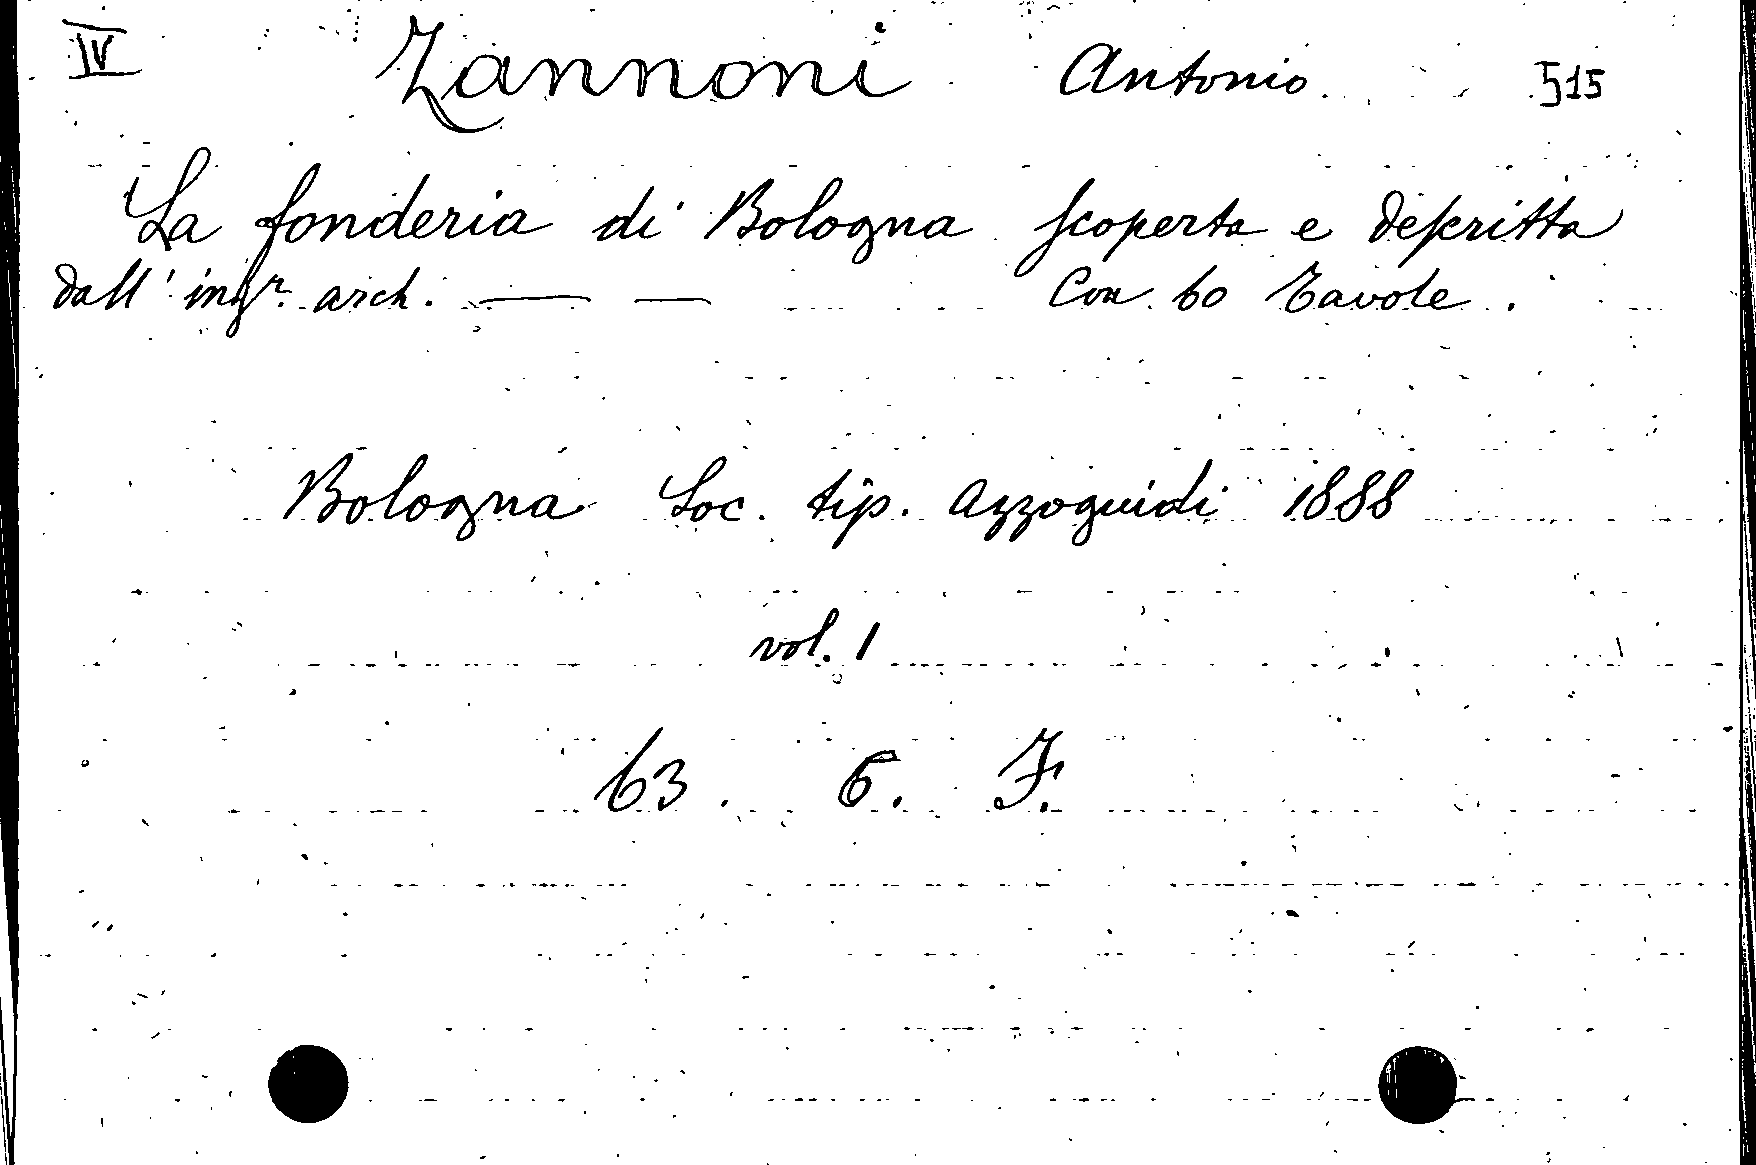 IV Zannoni Antonio 515
La fonderia di Bologna scoperta e descritta
dall' ingr. arch. — — Con 60 Tavole.
Bologna Soc. tip. Azzoguidi 1888
vol. 1
63. 6. F.